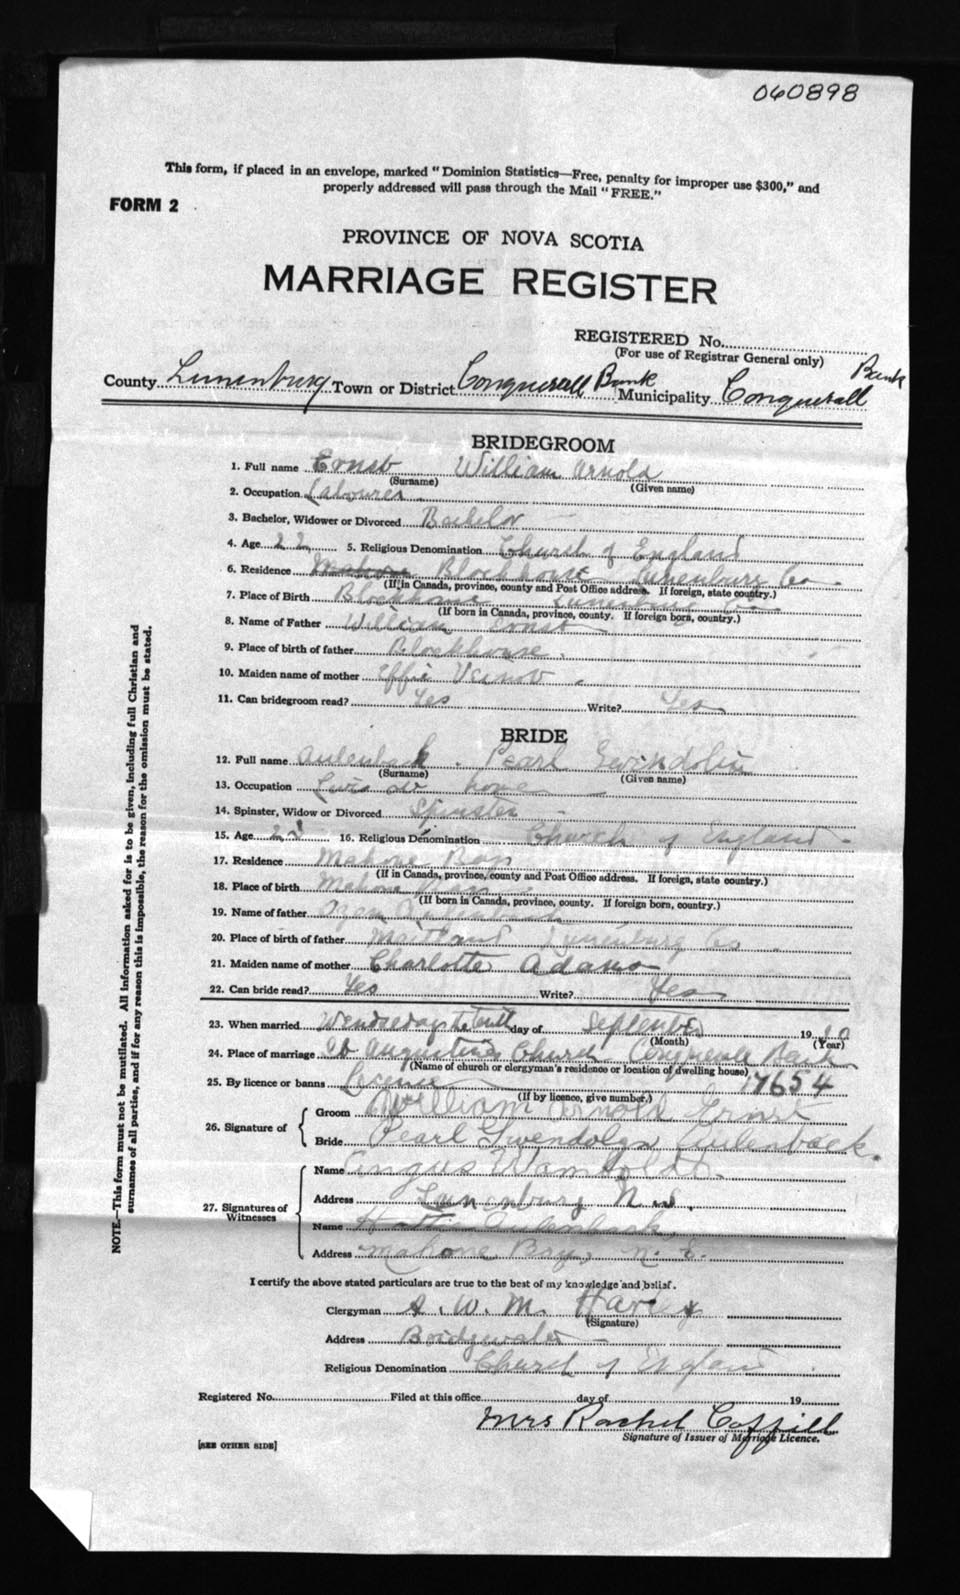 060898
This form, if placed in an envelope, marked "Dominion Statistics—Free, penalty for improper use $300," and
properly addressed will pass through the Mail "FREE."
FORM 2
PROVINCE OF NOVA SCOTIA
MARRIAGE REGISTER
REGISTERED No.
(For use of Registrar General only)
County Lunenburg Town or District Conquerall Bank Municipality Conquerall Bank
BRIDEGROOM
1. Full name Ernst William Arnold
(Surname) (Given name)
2. Occupation Labourer.
3. Bachelor, Widower or Divorced Bachelor
4. Age 22 5. Religious Denomination Church of England
6. Residence Mahone Blockhouse Lunenburg Co
(If in Canada, province, county and Post Office address. If foreign, state country.)
7. Place of Birth Blockhouse Lunenburg Co
(If born in Canada, province, county. If foreign born, country.)
8. Name of Father William Ernst
9. Place of birth of father Blockhouse.
10. Maiden name of mother Effie
11. Can bridegroom read? Yes Write? Yes
BRIDE
12. Full name Aulenback. Pearl Gwindolin
(Surname) (Given name)
13. Occupation at home
14. Spinster, Widow or Divorced Spinster
15. Age 16. Religious Denomination Church of England
17. Residence Mahone Bay
(If in Canada, province, county and Post Office address. If foreign, state country.)
18. Place of birth Mahone Bay
(If born in Canada, province, county. If foreign born, country.)
19. Name of father Aulenback
20. Place of birth of father Maitland Lunenburg Co
21. Maiden name of mother Charlotte Adams
22. Can bride read? Yes Write? Yes
23. When married Wendseday the day of September 19
(Month) (Year)
24. Place of marriage St Augustines Church Conquerall Bank
(Name of church or clergyman's residence or location of dwelling house)
25. By licence or banns License 17654
(If by licence, give number.)
26. Signature of
Groom William Arnold Ernst
Bride Pearl Gwendolyn Aulenback.
27. Signatures of Witnesses
Name Angus Wamboldt.
Address Lunenburg N.S.
Name Hattie Aulenback
Address Mahone Bay, N.S.
I certify the above stated particulars are true to the best of my knowledge and belief.
Clergyman A. W. M. Harley
(Signature)
Address Bridgewater
Religious Denomination Church of England
Registered No. Filed at this office day of 19
Mrs Rachel Coffill
Signature of Issuer of Marriage Licence.
[SEE OTHER SIDE]
NOTE.—This form must not be mutilated. All information asked for is to be given, including full Christian and
surnames of all parties, and if for any reason this is impossible, the reason for the omission must be stated.